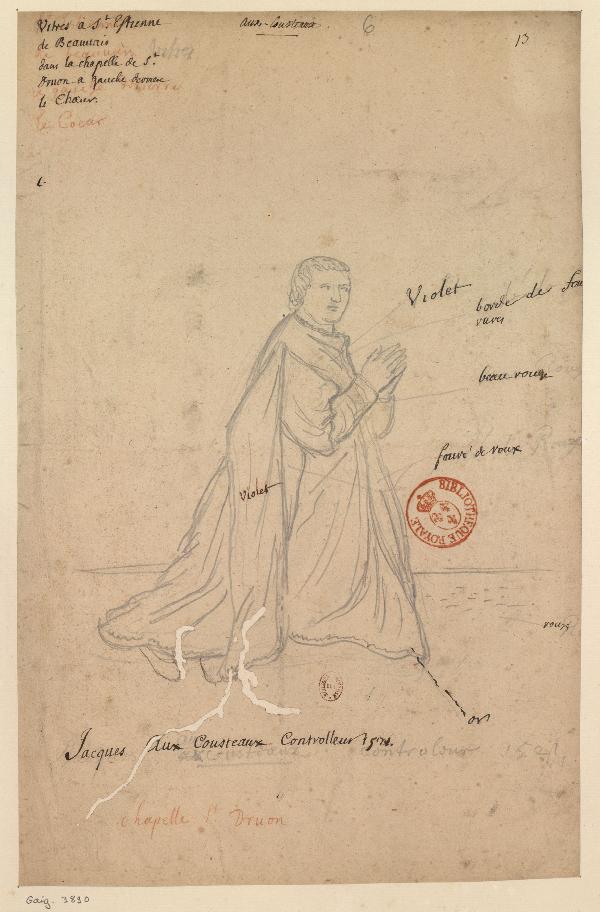 Vitres a St. Estienne
de Beauvais
dans la chapelle de St.
Druon a gauche derriere
le Chœur.
le Coeur
aux Cousteaux
6
13
Violet
bordé de fou
rures
beau rouge
fouré de roux
Violet
BIBLIOTHEQUE ROYALE
rouge
or
Jacques Aux Cousteaux Controlleur 1571.
Cousteaux Controlour
chapelle St Druon
Gaig. 3890